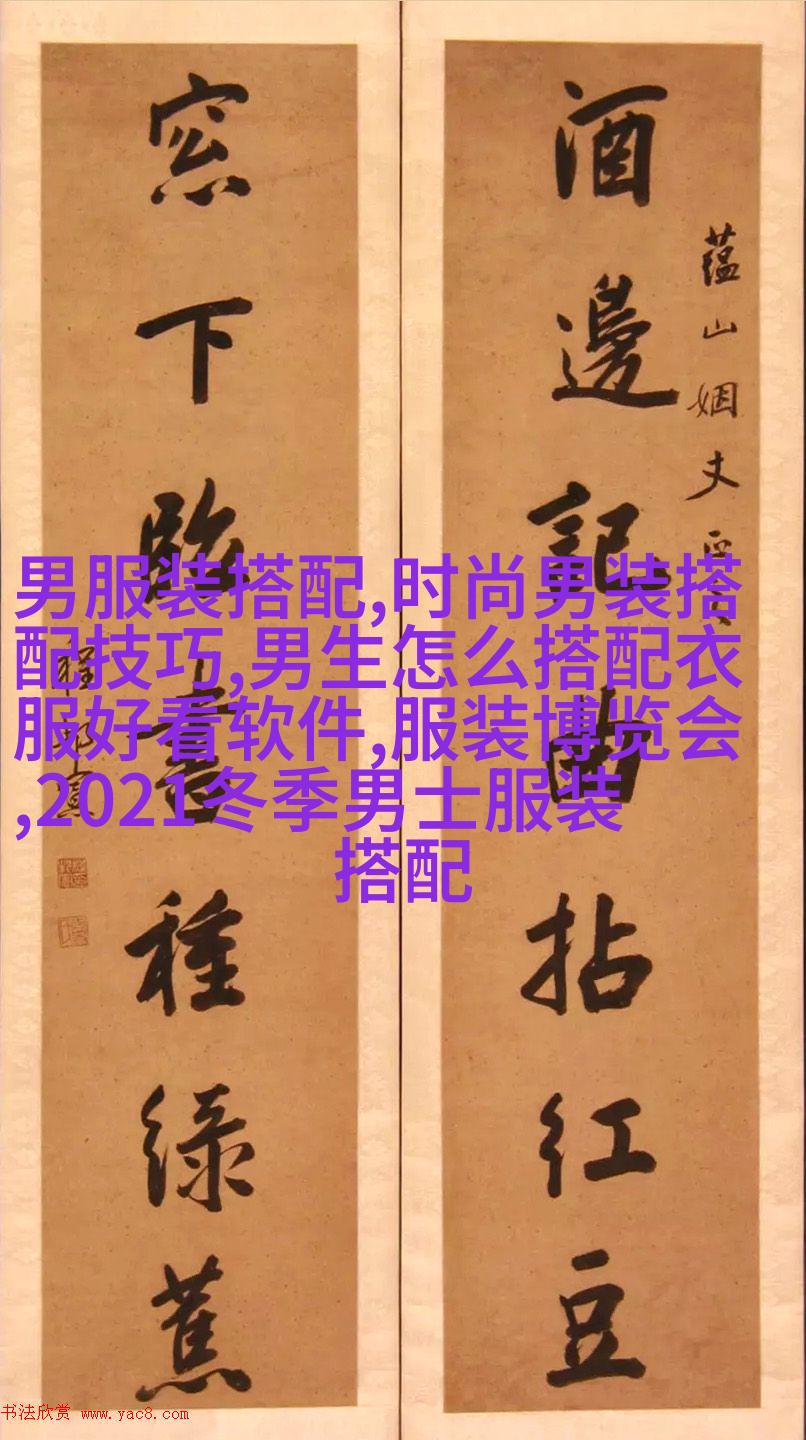 酒邊記曲拈紅豆
蘊山姻丈
窓下臨書種緑蕉
男服装搭配,时尚男装搭
配技巧,男生怎么搭配衣
服好看软件,服装博览会
,2021冬季男士服装
搭配
书法欣赏 www.yac8.com